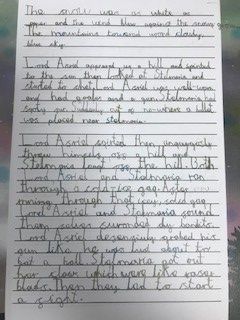 The snow was as white as
paper and the wind blew against the snowy
The mountains towered cloudy,
blue sky.
Lord Asriel appeared up a hill and sprinted
to the sun then looked at Stelmaria and
started to shot. Lord Asriel was well-worn
and had and a gun. Stelmaria had
out of nowhere a bullet
was placed near stelmaria.
Lord Asriel sprinted then
threw himself off a hill and
Stelmaria Both
Lord Asriel and Stelmaria ran
through a cold ice gap. After
running through that icey, cold gap
Lord Asriel and Stelmaria found
them selves surrounded by bandits.
Lord Asriel defensively grabed his
gun like he was just about to
hot a ball. Stelmaria got out
her claws which were like razor
blads. Then they had to start
a fight.